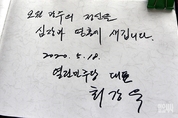 오월 광주의 정신을
심장과 면류에 새깁니다.
2020. 5. 18.
열린민주당 대표
최강욱